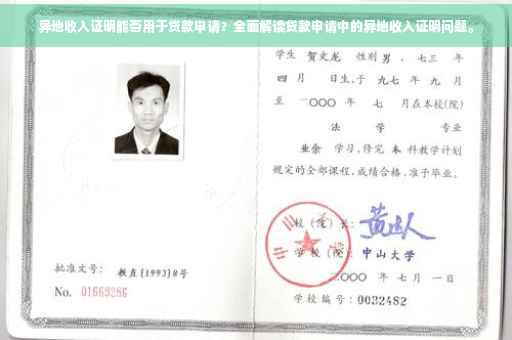 异地收入证明能否用于贷款申请？全面解读贷款申请中的异地收入证明问题。
学生 贺文龙 性别 男 、 七三 年
四 月 日生,于 九七 年 九 月
至 二〇〇〇 年 七 月在本校(院)
法 学 专业
业余 学习,修完 本 科教学计划
规定的全部课程,成绩合格,准予毕业。
校（院）长：
学 校（院）：中山大学
二〇〇〇 年 七 月 一 日
学校编号：0032482
批准文号：教直[1993]8号
No. 01669286